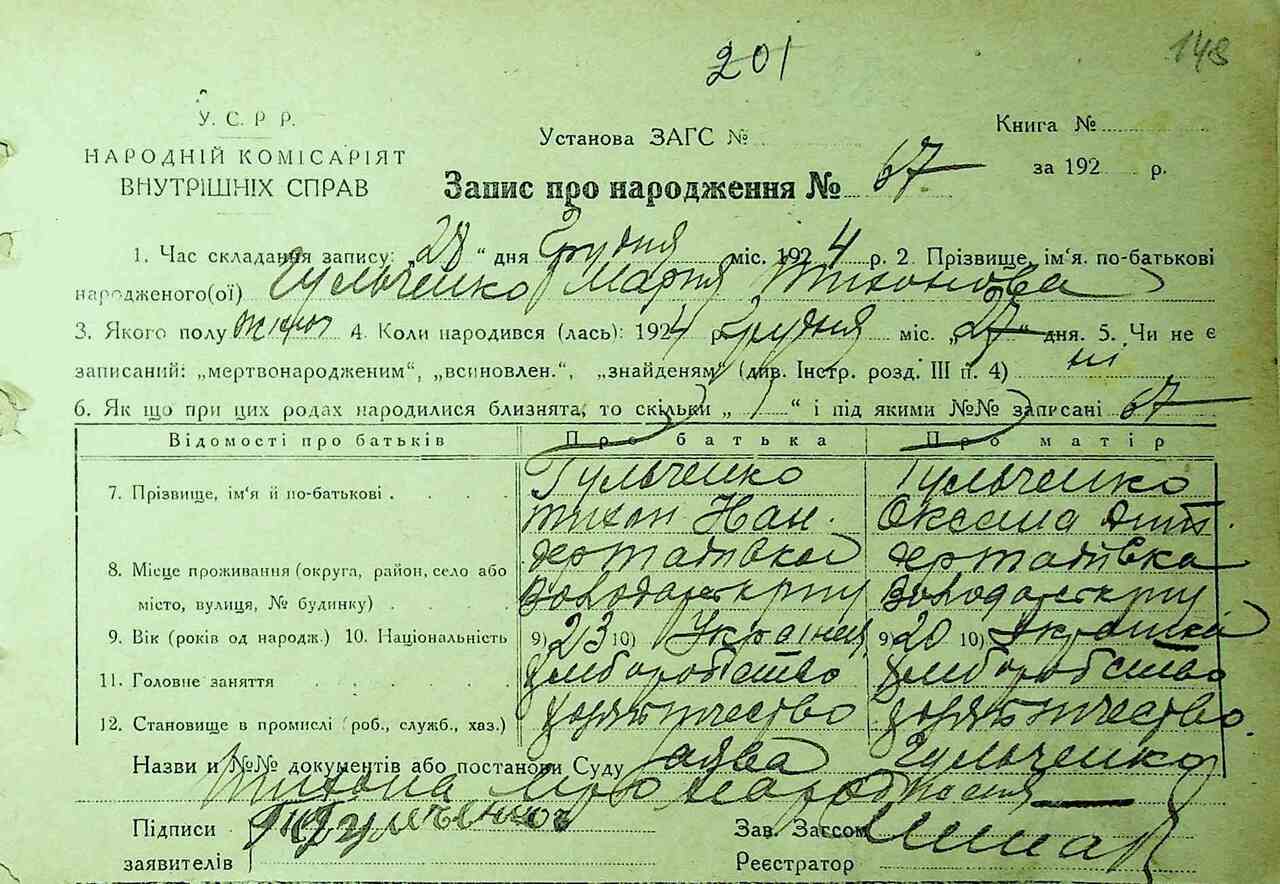 201
148
У. С. Р Р.
НАРОДНІЙ КОМІСАРІЯТ
ВНУТРІШНІХ СПРАВ
Установа ЗАГС №
Книга №
за 192 р.
Запис про народження № 67
1. Час складання запису: „28“ дня Грудня міс. 1924 р. 2. Прізвище, ім'я, по-батькові
народженого(ої) Гульченко Мария Тихонова
3. Якого полу жіноч 4. Коли народився (лась): 1924 р. Грудня міс. „27“ дня. 5. Чи не є
записаний: „мертвонародженим“, „всиновлен.“, „знайденям“ (див. Інстр. розд. III п. 4) ні
6. Як що при цих родах народилися близнята, то скільки „ “ і під якими №№ записані 67
Відомості про батьків Про батька Про матір
7. Прізвище, ім'я й по-батькові . Гульченко Гульченко
Тихон Оксана
8. Місце проживання (округа, район, село або
місто, вулиця, № будинку)
9. Вік (років од народж.) 10. Національність 9) 23 10) Українец 9) 20 10) Українка
11. Головне заняття хлиборобство хлиборобство
12. Становище в промислі (роб., служб., хаз.)
Назви и №№ документів або постанови Суду заява Гульченко
Тихона про народження
Підписи
заявителів
Зав. Загсом
Реєстратор